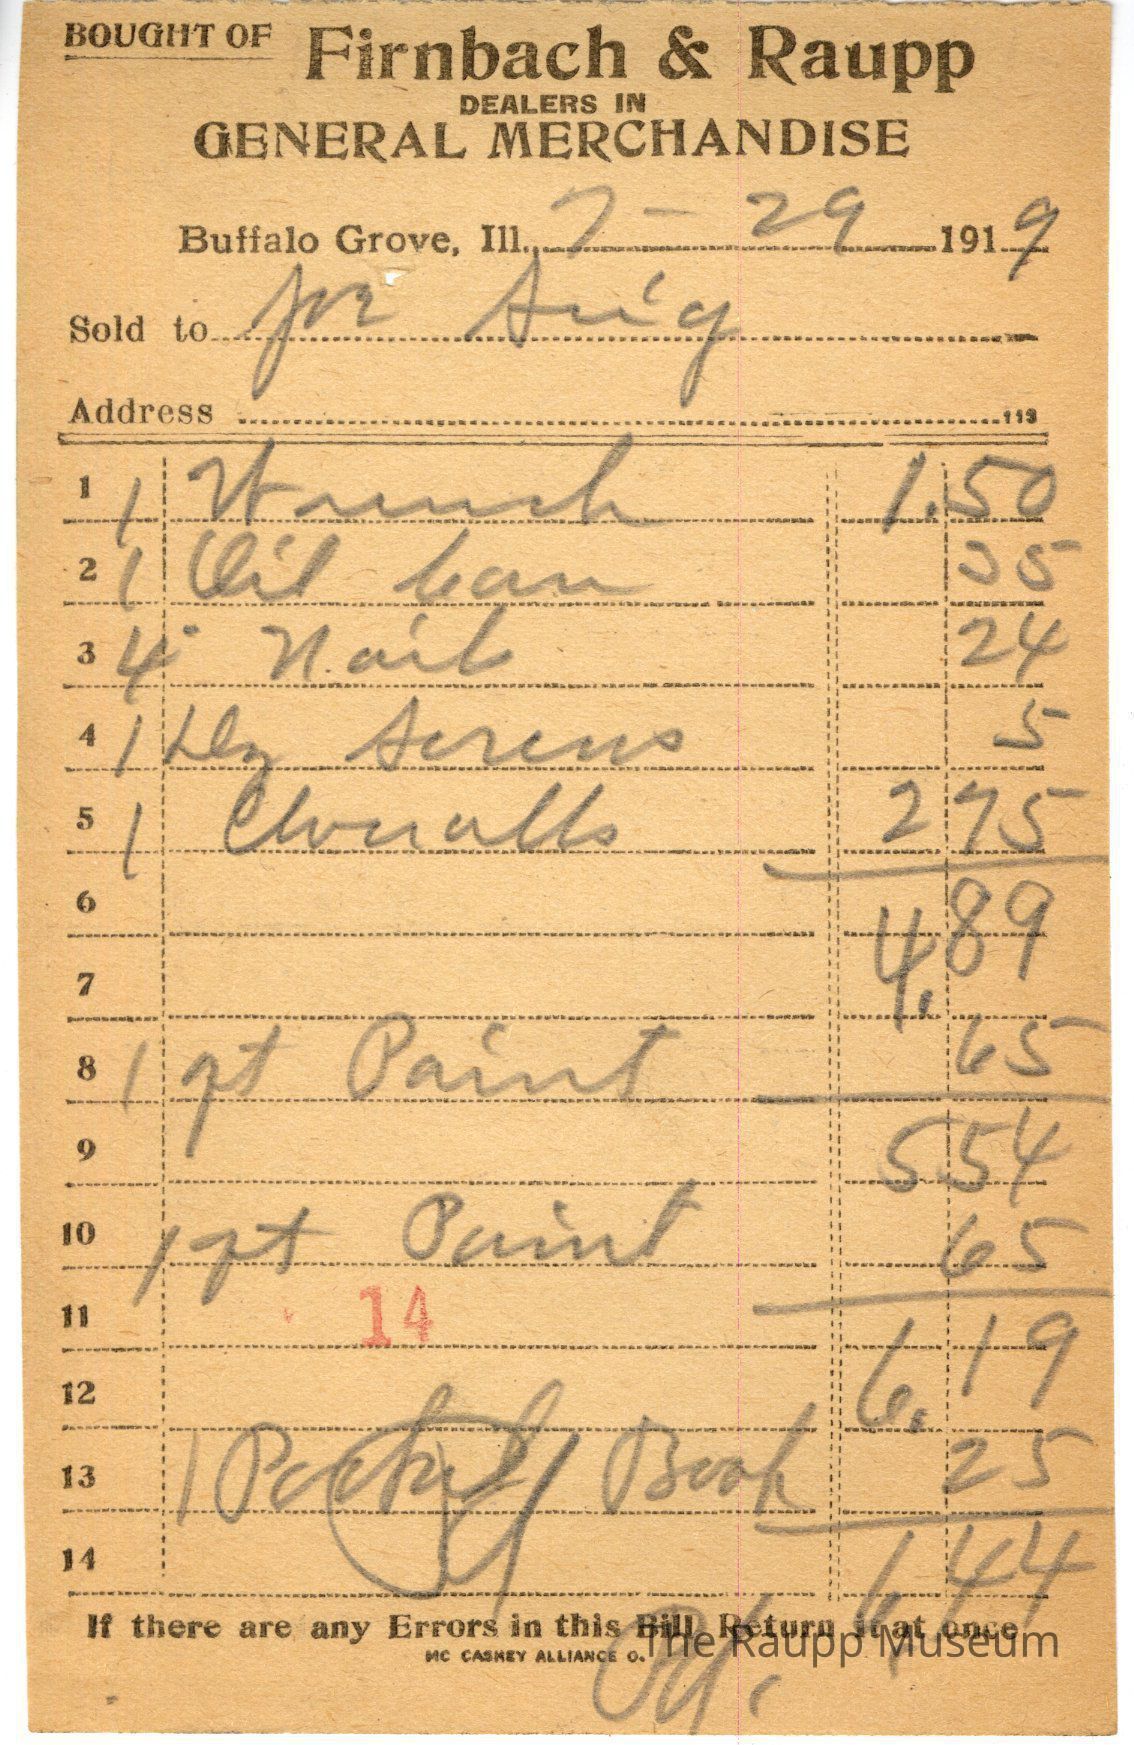 BOUGHT OF Firnbach & Raupp
DEALERS IN
GENERAL MERCHANDISE
Buffalo Grove, Ill., 7-29 1919
Sold to Joe
Address 113
1 1 Wrench 1.50
2 1 Oil Can 35
3 4 Nail 24
4 1 Dz Screws 5
5 1 Overalls 2 75
6 4.89
7
8 1 pt Paint 65
9 5 54
10 1 pt Paint 65
11 14
12 6.19
13 1 Pocket Book 25
14 6 44
If there are any Errors in this Bill Return it at once
MC CASKEY ALLIANCE O.
The Raupp Museum